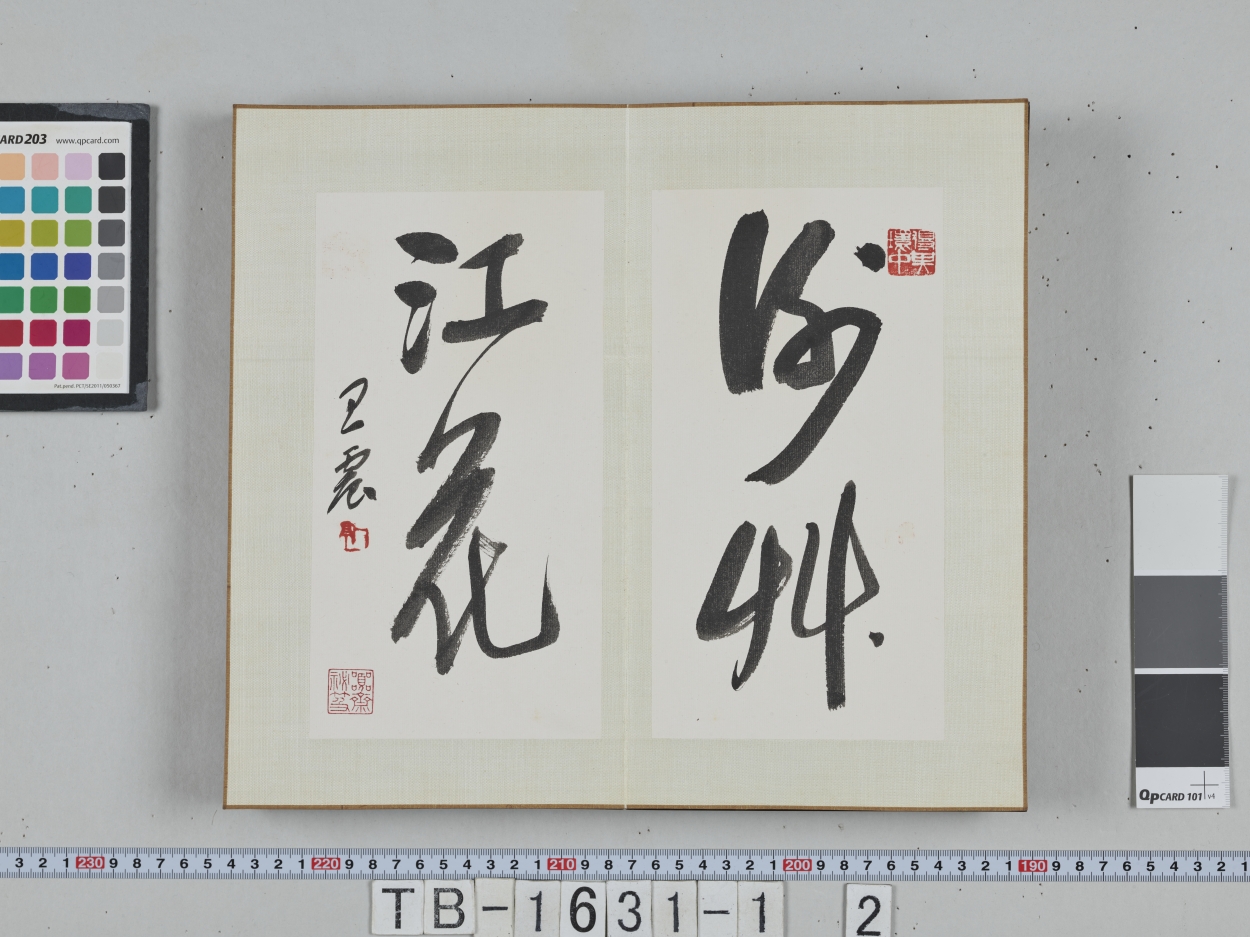 謝艸
得其環中
江花
王震
CARD 203 www.qpcard.com
Pat.pend: PCT/SE2011/050367
QPCARD 101 v4
3 2 1 230 9 8 7 6 5 4 3 2 1 220 9 8 7 6 5 4 3 2 1 210 9 8 7 6 5 4 3 2 1 200 9 8 7 6 5 4 3 2 1 190 9 8 7 6 5 4 3 2 1
TB-1631-1 2